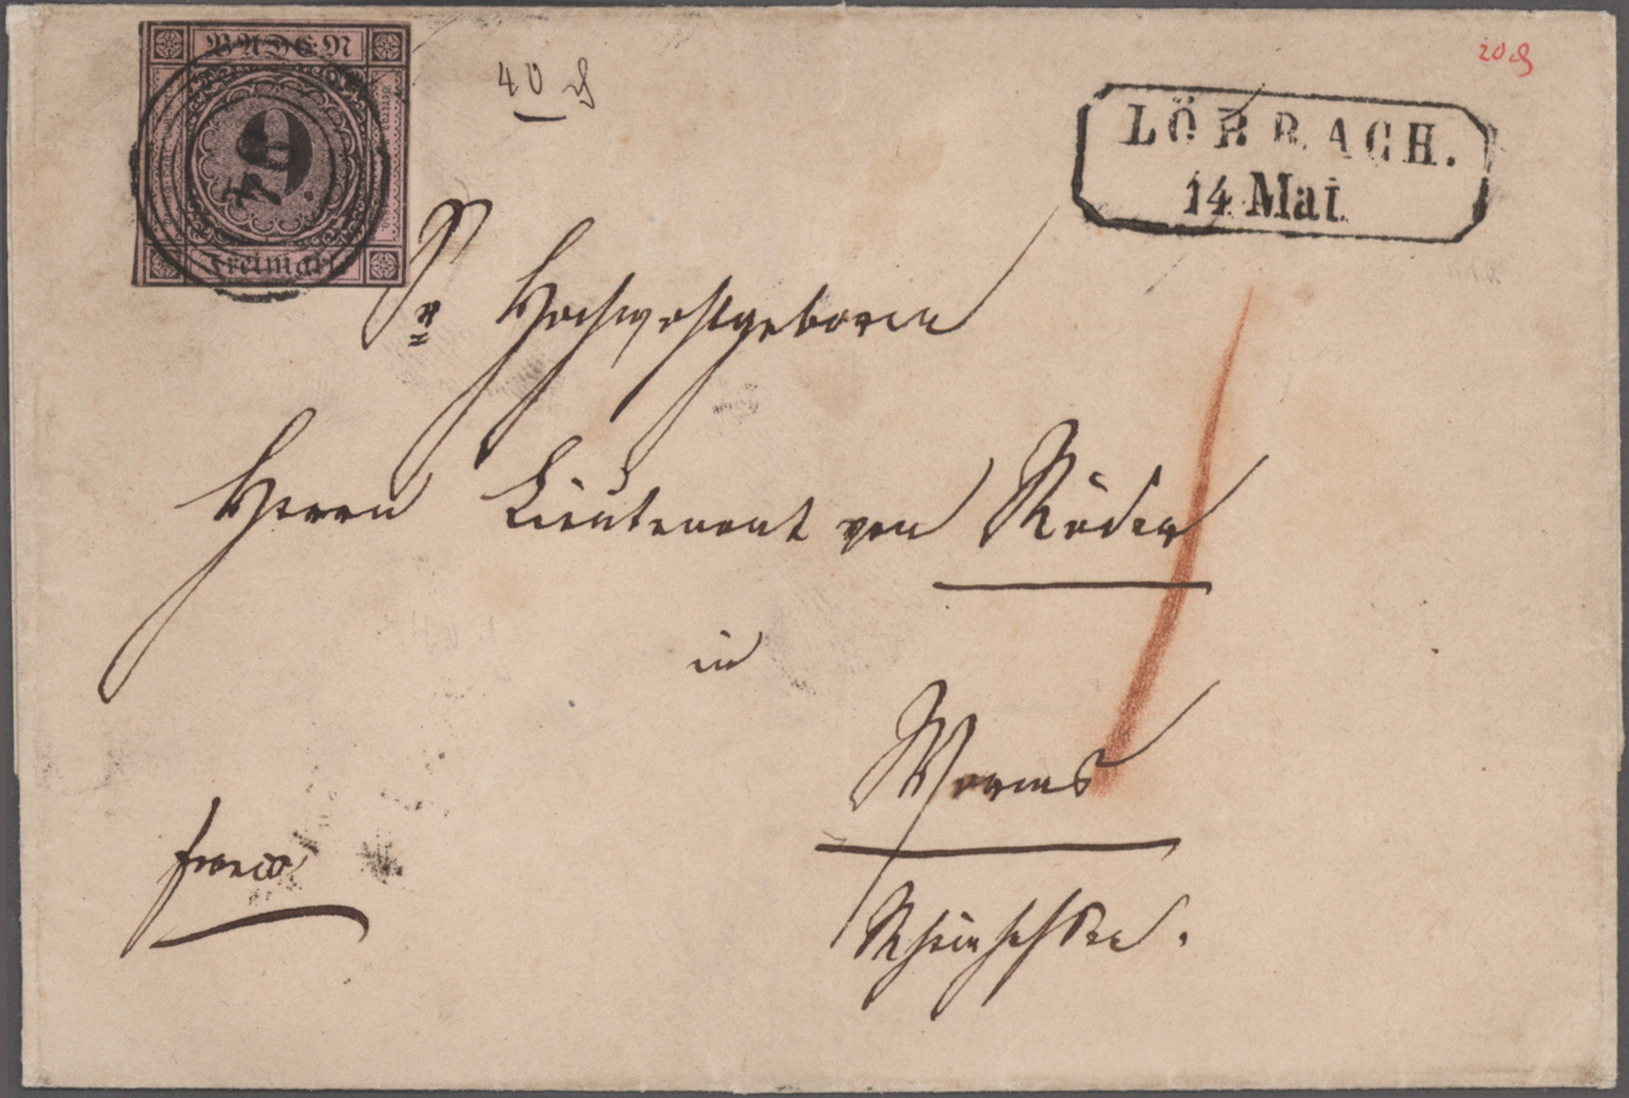 BADEN
9
Freimarke
84
40
20
LÖRRACH.
14 Mai
Sr Hochwohlgeboren
Herrn Lieutenant von Röder
in
Worms
Rheinhessen.
franco